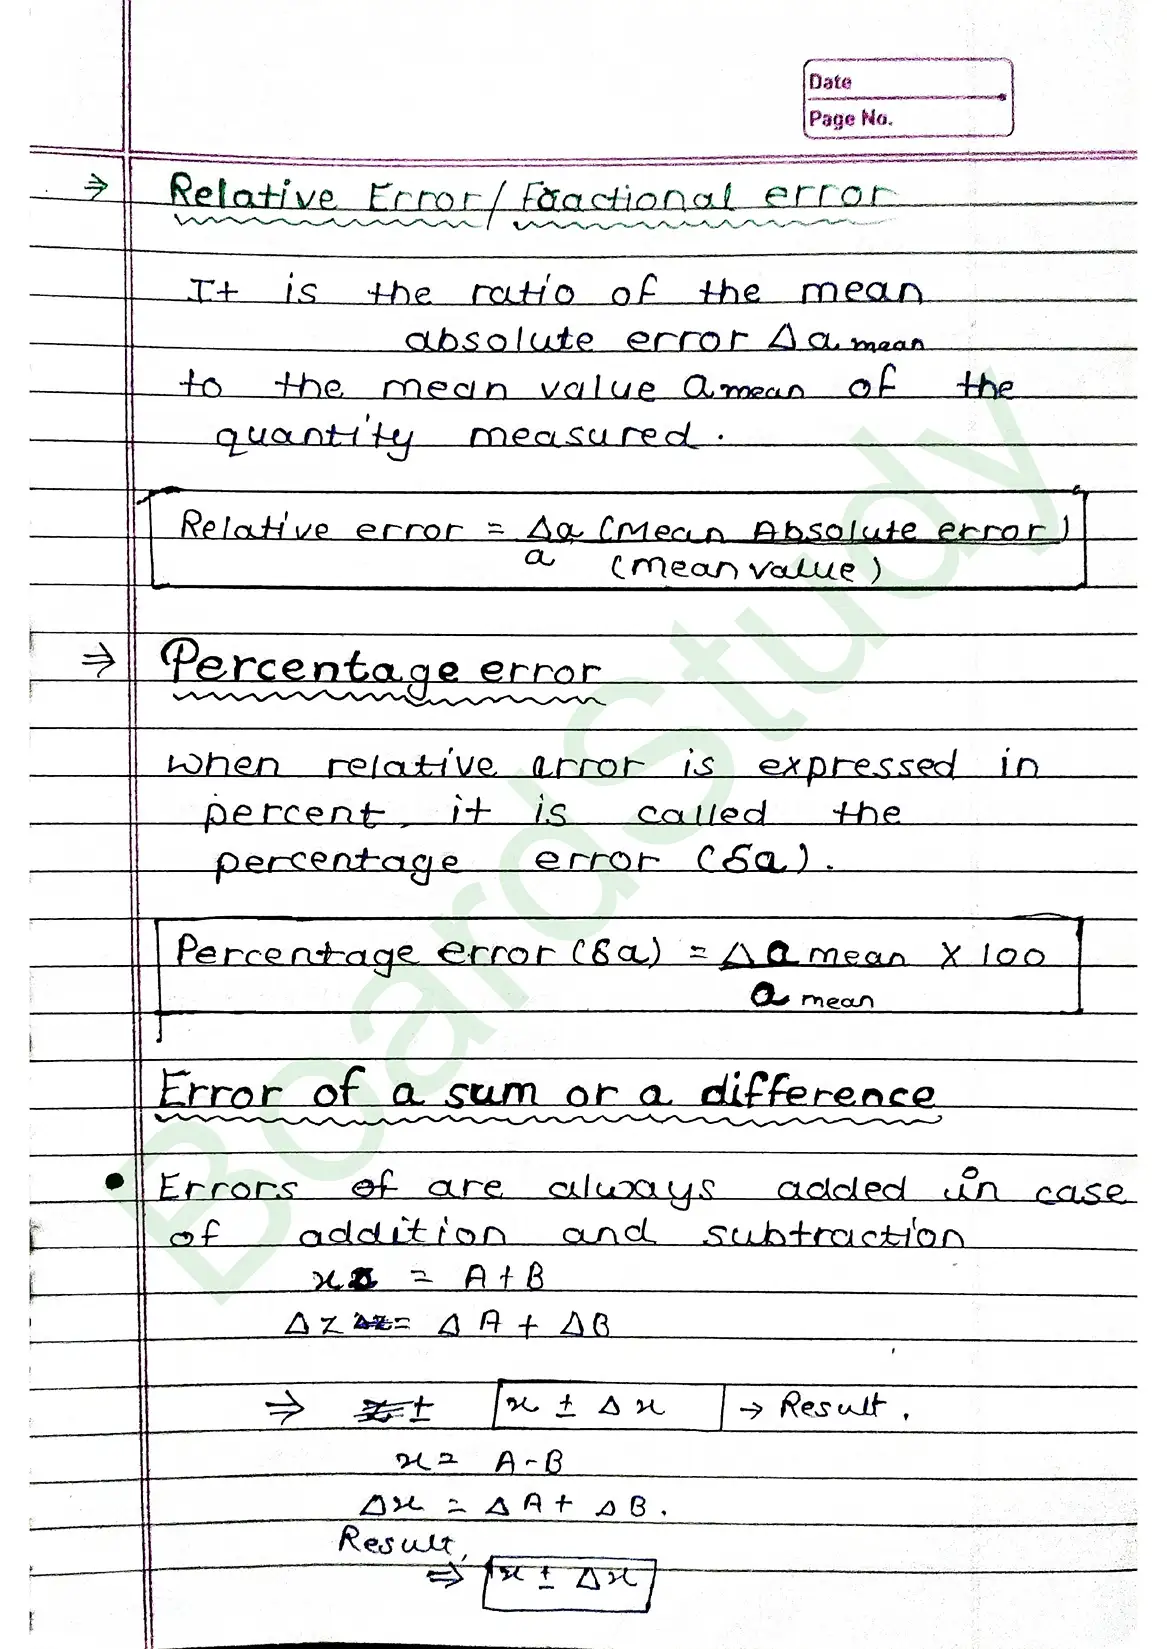 Date
Page No.
⇒ Relative Error/Fractional error
It is the ratio of the mean
absolute error Δa mean
to the mean value a mean of the
quantity measured.
Relative error = Δa (Mean Absolute error)
a (mean value)
⇒ Percentage error
When relative arror is expressed in
percent, it is called the
percentage error (δa).
Percentage error (δa) = Δa mean X 100
a mean
Error of a sum or a difference
• Errors of are always added in case
of addition and subtraction
x = A + B
ΔZ = ΔA + ΔB
⇒ ± x ± Δx → Result.
x = A - B
Δx = ΔA + ΔB.
Result,
⇒ x ± Δx
BoardStudy